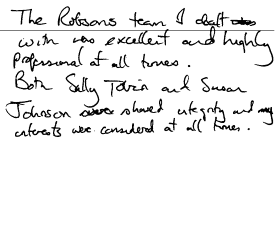 The Robsons team I dealt
with was excellent and highly
professional at all times.
Both Sally Tobin and Susan
Johnson showed integrity and my
interests were considered at all times.